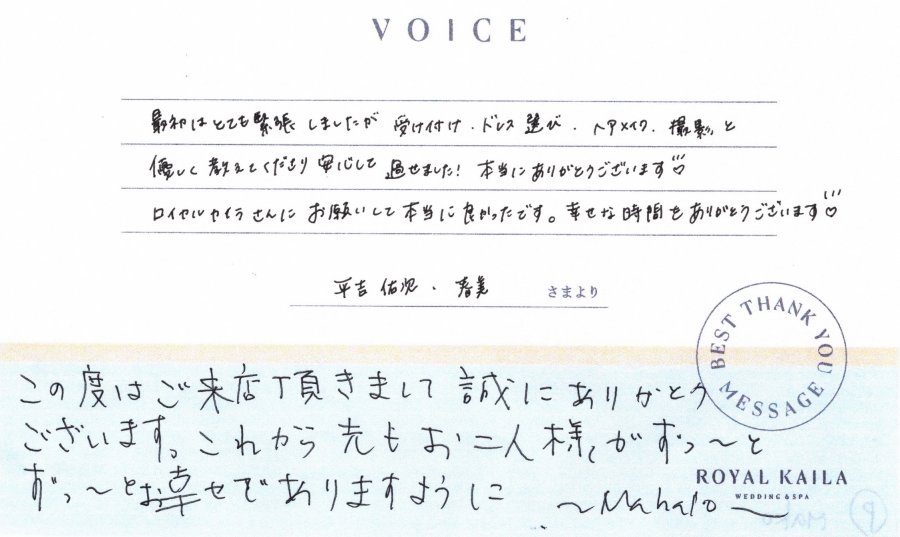 VOICE
最初はとても緊張しましたが 受け付け・ドレス選び・ヘアメイク・撮影と
優しく教えてくださり安心して過せました! 本当にありがとうございます♡
ロイヤルカイラさんにお願いして本当に良かったです。幸せな時間をありがとうございます♡
平吉 佑次・春美 さまより
BEST THANK YOU MESSAGE
この度はご来店頂きまして誠にありがとう
ございます。これから先もお二人様がずっ〜と
ずっ〜とお幸せでありますように
〜Mahalo〜
ROYAL KAILA
WEDDING & SPA